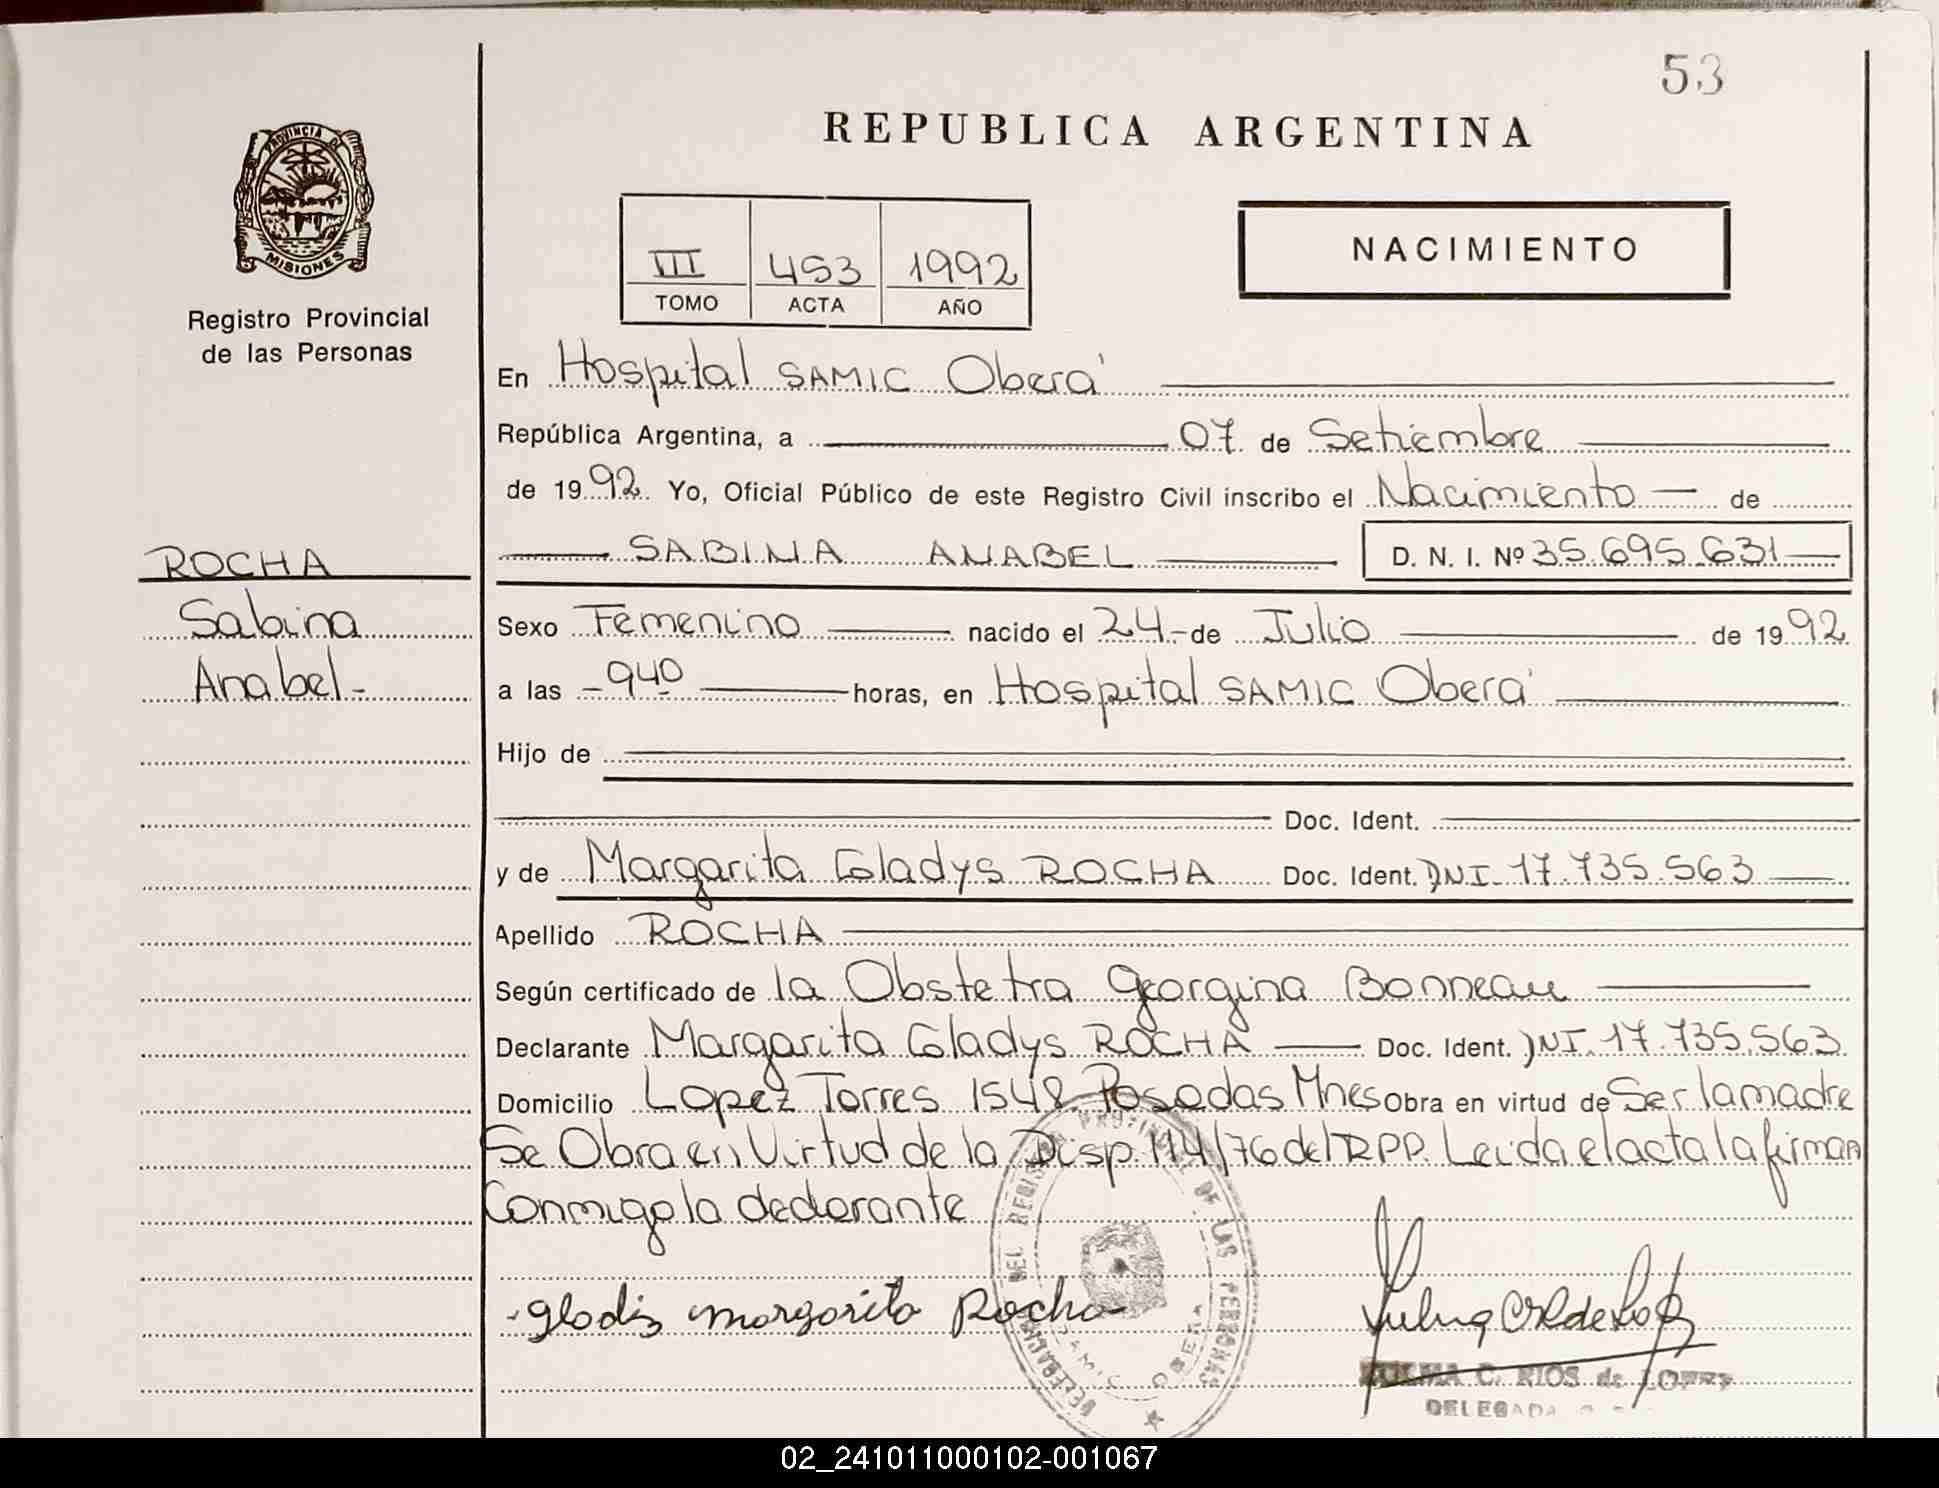 53
REPUBLICA ARGENTINA
PROVINCIA DE
MISIONES
Registro Provincial
de las Personas
III 453 1992
TOMO ACTA AÑO
NACIMIENTO
En Hospital SAMIC Oberá
República Argentina, a 07 de Setiembre
de 1992 Yo, Oficial Público de este Registro Civil inscribo el Nacimiento de
ROCHA
Sabina
Anabel
SABINA ANABEL D. N. I. Nº 35.695.631
Sexo Femenino nacido el 24 de Julio de 1992
a las 940 horas, en Hospital SAMIC Oberá
Hijo de
Doc. Ident.
y de Margarita Gladys ROCHA Doc. Ident. DNI 17.735.563
Apellido ROCHA
Según certificado de la Obstetra Georgina Bonneau
Declarante Margarita Gladys ROCHA Doc. Ident. DNI. 17.735.563
Domicilio Lopez Torres 1548 Posadas Mnes Obra en virtud de Ser la madre
Se Obra en Virtud de la Disp. 114/76 del RPP. Leida el acta la firman
Conmigo la declarante
Gladis margarita Rocha
DEL REGISTRO PROVINCIAL DE LAS PERSONAS
SAMIC OBERA
C. RIOS de LOPEZ
DELEGADA
02_241011000102-001067